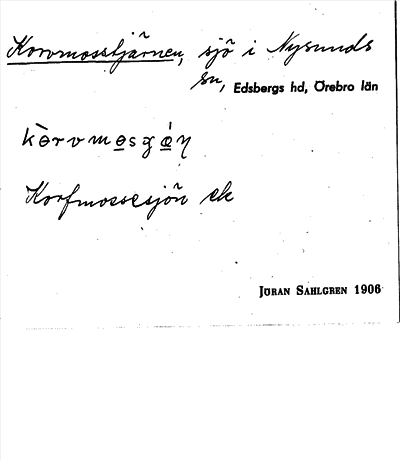 Korvmosstjärnen, sjö i Nysunds
sn, Edsbergs hd, Örebro län
kòrvmo̲sgǽ̲ŋ
Korfmossesjön ek
JÖRAN SAHLGREN 1906